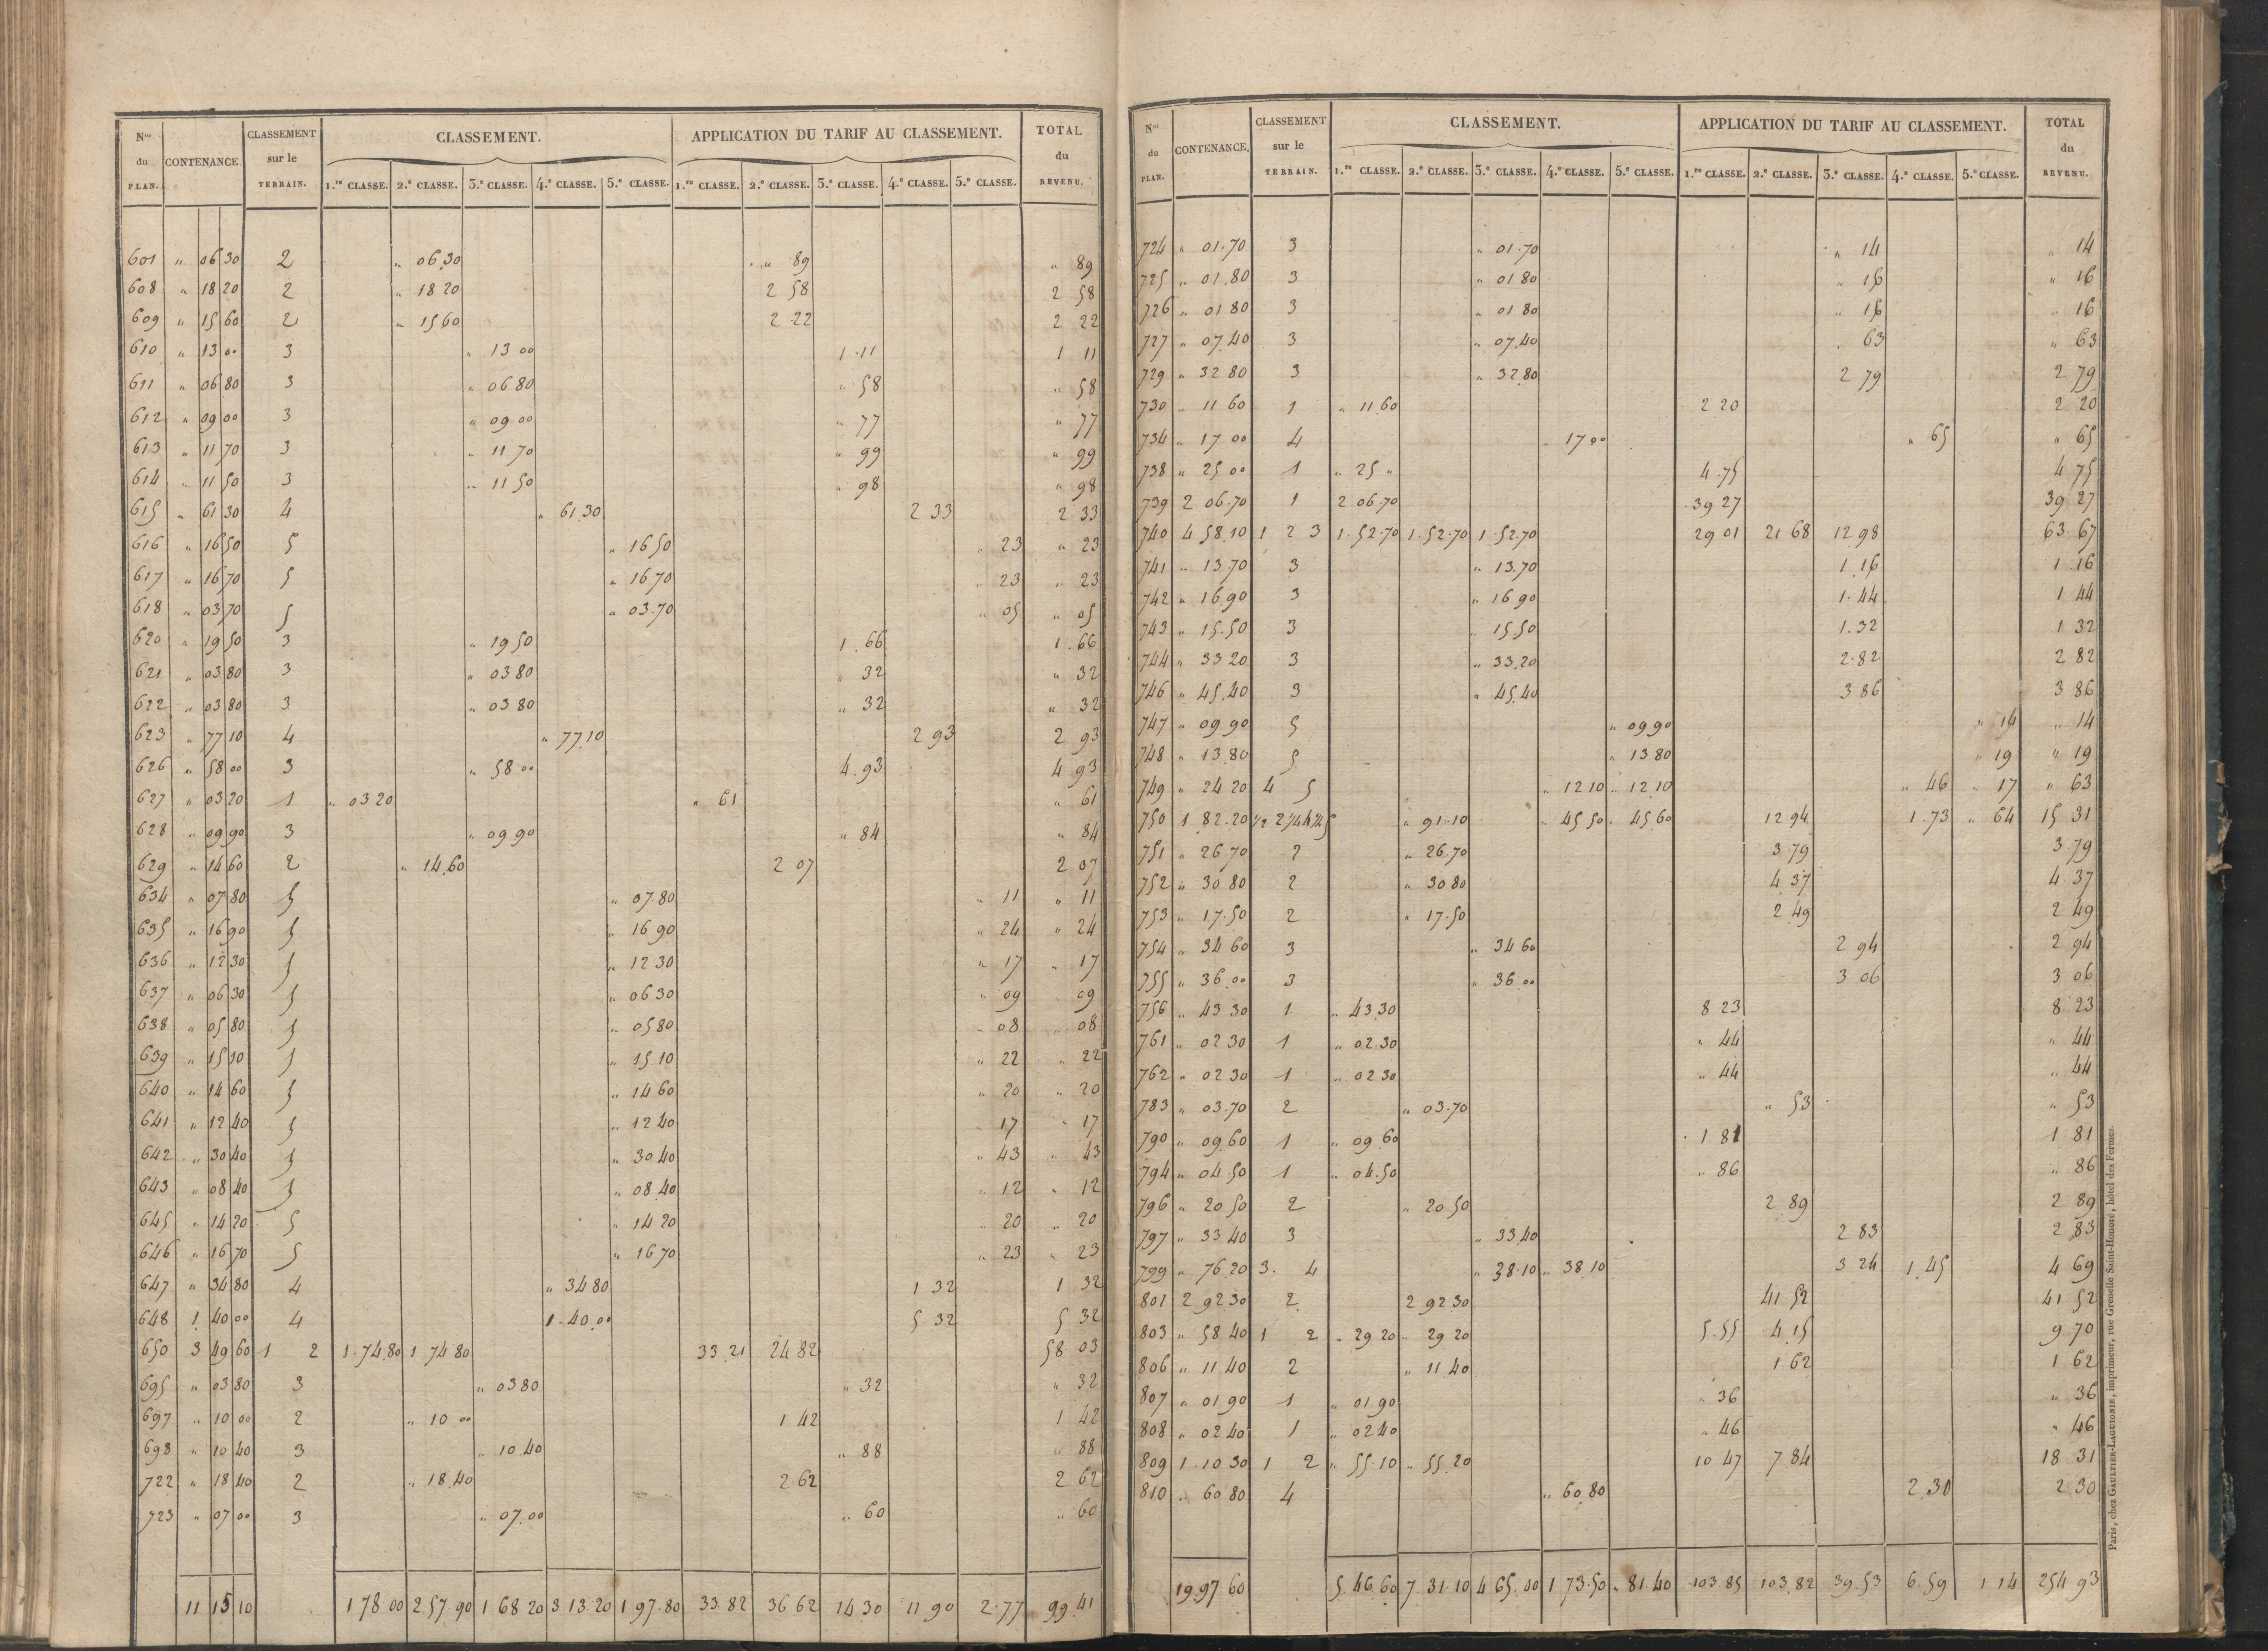 Nos du PLAN. CONTENANCE. CLASSEMENT sur le TERRAIN. CLASSEMENT. APPLICATION DU TARIF AU CLASSEMENT. TOTAL du REVENU.
1.re CLASSE. 2.e CLASSE. 3.e CLASSE. 4.e CLASSE. 5.e CLASSE. 1.re CLASSE. 2.e CLASSE. 3.e CLASSE. 4.e CLASSE. 5.e CLASSE.
601 " 06 30 2 " 06.30 " 89 " 89
608 " 18 20 2 " 18 20 2 58 2 58
609 " 15 60 2 " 15 60 2.22 2 22
610 " 13 00 3 " 13 00 1.11 1 11
611 " 06 80 3 " 06 80 " 58 " 58
612 " 09 00 3 " 09 00 " 77 " 77
613 " 11 70 3 " 11 70 " 99 " 99
614 " 11 50 3 " 11 50 " 98 " 98
615 " 61 30 4 " 61.30 2 33 2 33
616 " 16 50 5 " 16 50 " 23 " 23
617 " 16 70 5 " 16 70 " 23 " 23
618 " 03 70 5 " 03.70 " 05 " 05
620 " 19 50 3 " 19 50 1.66 1.66
621 " 03 80 3 " 03 80 " 32 " 32
622 " 03 80 3 " 03 80 " 32 " 32
623 " 77 10 4 " 77.10 2 93 2 93
626 " 58 00 3 " 58 00 4.93 4 93
627 " 03 20 1 " 03 20 " 61 " 61
628 " 09 90 3 " 09 90 " 84 " 84
629 " 14 60 2 " 14.60 2 07 2 07
634 " 07 80 5 " 07.80 " 11 " 11
635 " 16 90 5 " 16 90 " 24 " 24
636 " 12 30 5 " 12 30 " 17 " 17
637 " 06 30 5 " 06 30 " 09 " 09
638 " 05 80 5 " 05 80 " 08 " 08
639 " 15 10 5 " 15 10 " 22 " 22
640 " 14 60 5 " 14 60 " 20 " 20
641 " 12 40 5 " 12 40 " 17 " 17
642 " 30 40 5 " 30 40 " 43 " 43
643 " 08 40 5 " 08.40 " 12 " 12
645 " 14 20 5 " 14 20 " 20 " 20
646 " 16 70 5 " 16 70 " 23 " 23
647 " 34 80 4 " 34 80 1 32 1 32
648 1 40 00 4 1.40.00 5 32 5 32
650 3 49 60 1 2 1.74.80 1 74 80 33.21 24 82 58 03
695 " 03 80 3 " 03 80 " 32 " 32
697 " 10 00 2 " 10 00 1 42 1 42
698 " 10 40 3 " 10.40 " 88 " 88
722 " 18 40 2 " 18.40 2 62 2 62
723 " 07 00 3 " 07.00 " 60 " 60
11 15 10 1 78 00 2.57.90 1 68 20 3 13.20 1 97.80 33.82 36 62 14 30 11 90 2.77 99.41
Nos du PLAN. CONTENANCE. CLASSEMENT sur le TERRAIN. CLASSEMENT. APPLICATION DU TARIF AU CLASSEMENT. TOTAL du REVENU.
1.re CLASSE. 2.e CLASSE. 3.e CLASSE. 4.e CLASSE. 5.e CLASSE. 1.re CLASSE. 2.e CLASSE. 3.e CLASSE. 4.e CLASSE. 5.e CLASSE.
724 " 01.70 3 " 01.70 " 14 " 14
725 " 01.80 3 " 01 80 " 16 " 16
726 " 01 80 3 " 01 80 " 16 " 16
727 " 07.40 3 " 07.40 " 63 " 63
729 " 32 80 3 " 32.80 2 79 2 79
730 " 11 60 1 " 11.60 2 20 2 20
734 " 17 00 4 " 17 00 " 65 " 65
738 " 25 00 1 " 25 " 4.75 4 75
739 2 06.70 1 2 06.70 39 27 39 27
740 4 58.10 1 2 3 1.52.70 1.52.70 1.52.70 29 01 21 68 12 98 63 67
741 " 13.70 3 " 13.70 1.16 1.16
742 " 16.90 3 " 16 90 1.44 1 44
743 " 15.50 3 " 15.50 1.32 1 32
744 " 33 20 3 " 33.20 2.82 2 82
746 " 45.40 3 " 45.40 3 86 3 86
747 " 09.90 5 " 09.90 " 14 " 14
748 " 13.80 5 " 13 80 " 19 " 19
749 " 24 20 4 5 " 12 10 " 12.10 " 46 " 17 " 63
750 1 82.20 1/2 2 1/4 4 1/4 5 " 91.10 " 45 50 " 45.60 12 94 1.73 " 64 15 31
751 " 26.70 2 " 26.70 3.79 3 79
752 " 30 80 2 " 30 80 4.37 4.37
753 " 17.50 2 " 17.50 2 49 2 49
754 " 34 60 3 " 34 60 2 94 2 94
755 " 36.00 3 " 36.00 3 06 3 06
756 " 43 30 1 " 43.30 8 23 8 23
761 " 02 30 1 " 02.30 " 44 " 44
762 " 02 30 1 " 02 30 " 44 " 44
783 " 03.70 2 " 03.70 " 53 " 53
790 " 09.60 1 " 09 60 1.81 1 81
794 " 04.50 1 " 04.50 " 86 " 86
796 " 20 50 2 " 20 50 2 89 2 89
797 " 33 40 3 " 33.40 2 83 2 83
799 " 76.20 3. 4 " 38.10 " 38.10 3 24 1.45 4 69
801 2 92.30 2 2 92 30 41 52 41 52
803 " 58 40 1 2 " 29 20 " 29 20 5.55 4.15 9 70
806 " 11 40 2 " 11 40 1 62 1 62
807 " 01 90 1 " 01 90 " 36 " 36
808 " 02 40 1 " 02 40 " 46 " 46
809 1 10 30 1 2 " 55.10 " 55.20 10 47 7 84 18 31
810 " 60 80 4 " 60.80 2.30 2 30
19.97 60 5.46.60 7.31.10 4 65.00 1 73.50 " 81.40 103.85 103.82 39.53 6.59 1 14 254 93
Paris, chez GAULTIER-LAGUIONIE, imprimeur, rue Grenelle Saint-Honoré, hôtel des Fermes.